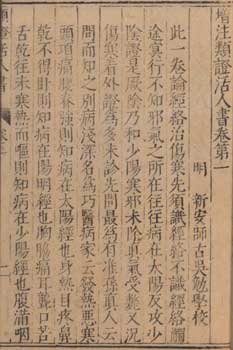 增注類證活人書卷第一
明 新安師古吳勉學校
此一卷論經絡治傷寒先須識經絡不識經絡觸
途冥行不知邪氣之所在往往病在太陽反攻少
陰證是厥陰乃和少陽寒邪未除真氣受斃又况
傷寒看外證爲多未診先問最爲有准孫真人云
問而知之別病淺深名爲巧醫病家云發熱惡寒
頭項痛腰脊強則知病在太陽經也身熱目疼鼻
乾不得卧則知病在陽明經也胸脇痛耳聾口苦
舌乾往來寒熱而嘔則知病在少陽經也腹滿咽